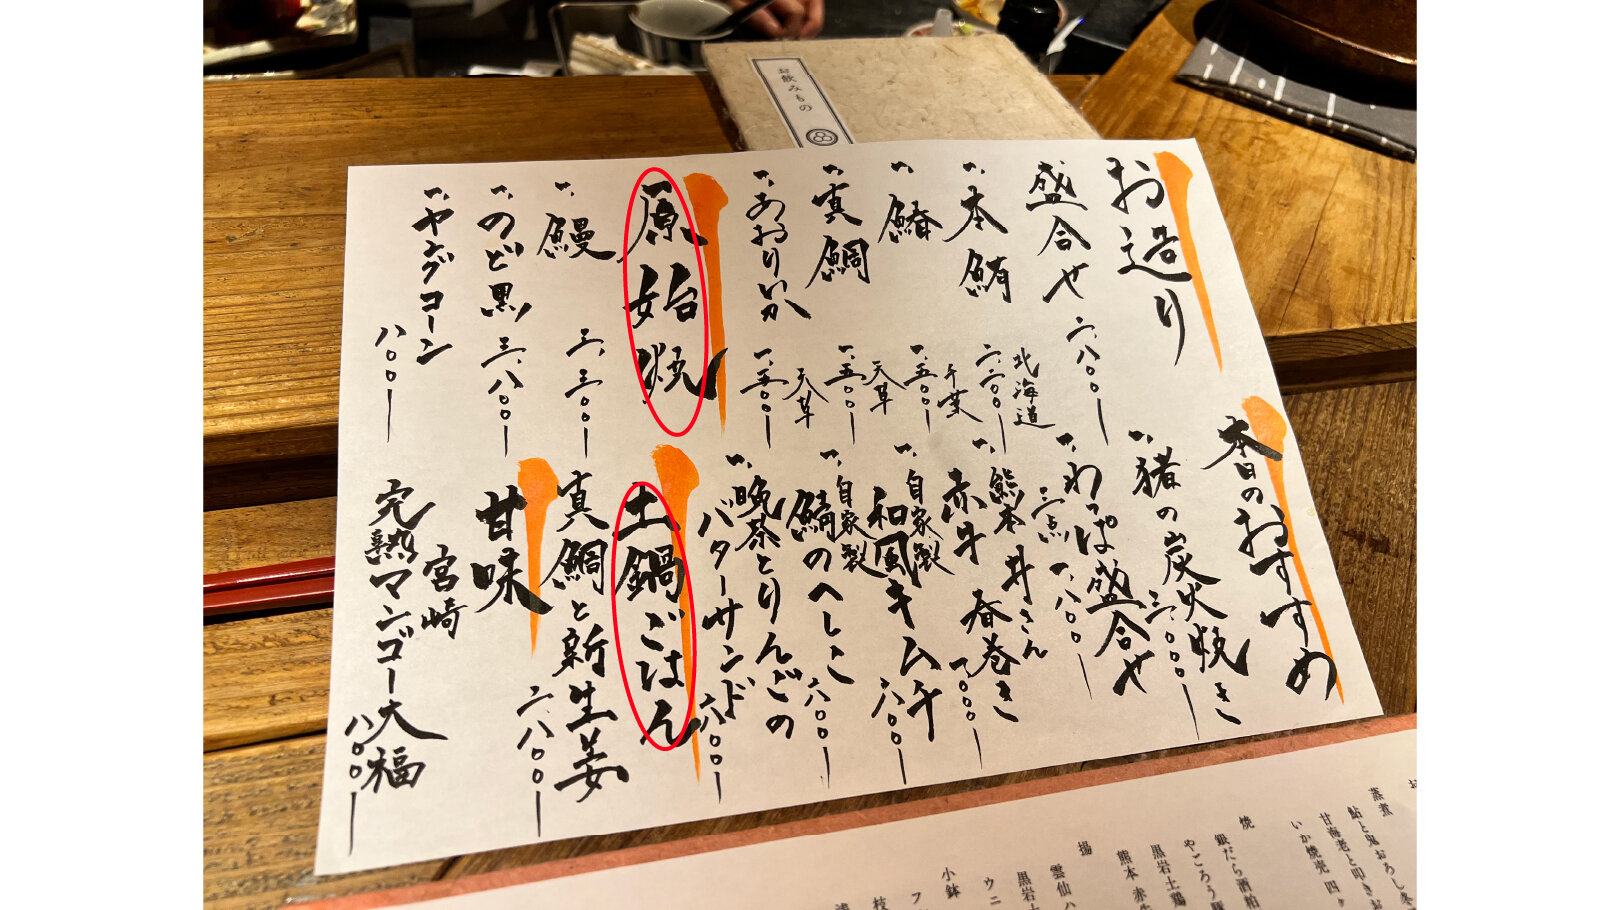 お飲みもの
お造り
盛合せ 六、八〇〇
一、本鮪 北海道 二、二〇〇
一、鰆 千葉 一、五〇〇
一、真鯛 天草 一、五〇〇
一、あおりいか 天草 一、五〇〇
原始焼
一、鰻 三、三〇〇
一、のど黒 三、八〇〇
一、ヤングコーン 八〇〇
本日のおすすめ
一、猪の炭火焼き 三、〇〇〇
一、わっぱ盛合せ 三点 一、八〇〇
一、熊本 井さん
赤牛 春巻き 一、〇〇〇
一、自家製
和風キムチ 八〇〇
一、自家製
鯖のへしこ 八〇〇
一、晩茶とりんごの
バターサンド 八〇〇
土鍋ごはん
真鯛と新生姜 二、八〇〇
甘味
宮崎
完熟マンゴー大福 八〇〇
お
蒸煮
鮎と鬼おろし冬
甘海老と叩きお
いか焼売 四ヶ
焼
銀だら酒粕
やごろう豚
黒岩土鶏
熊本 赤牛
揚
雲仙ハ
黒岩土
ウニ
小鉢
フ
枝